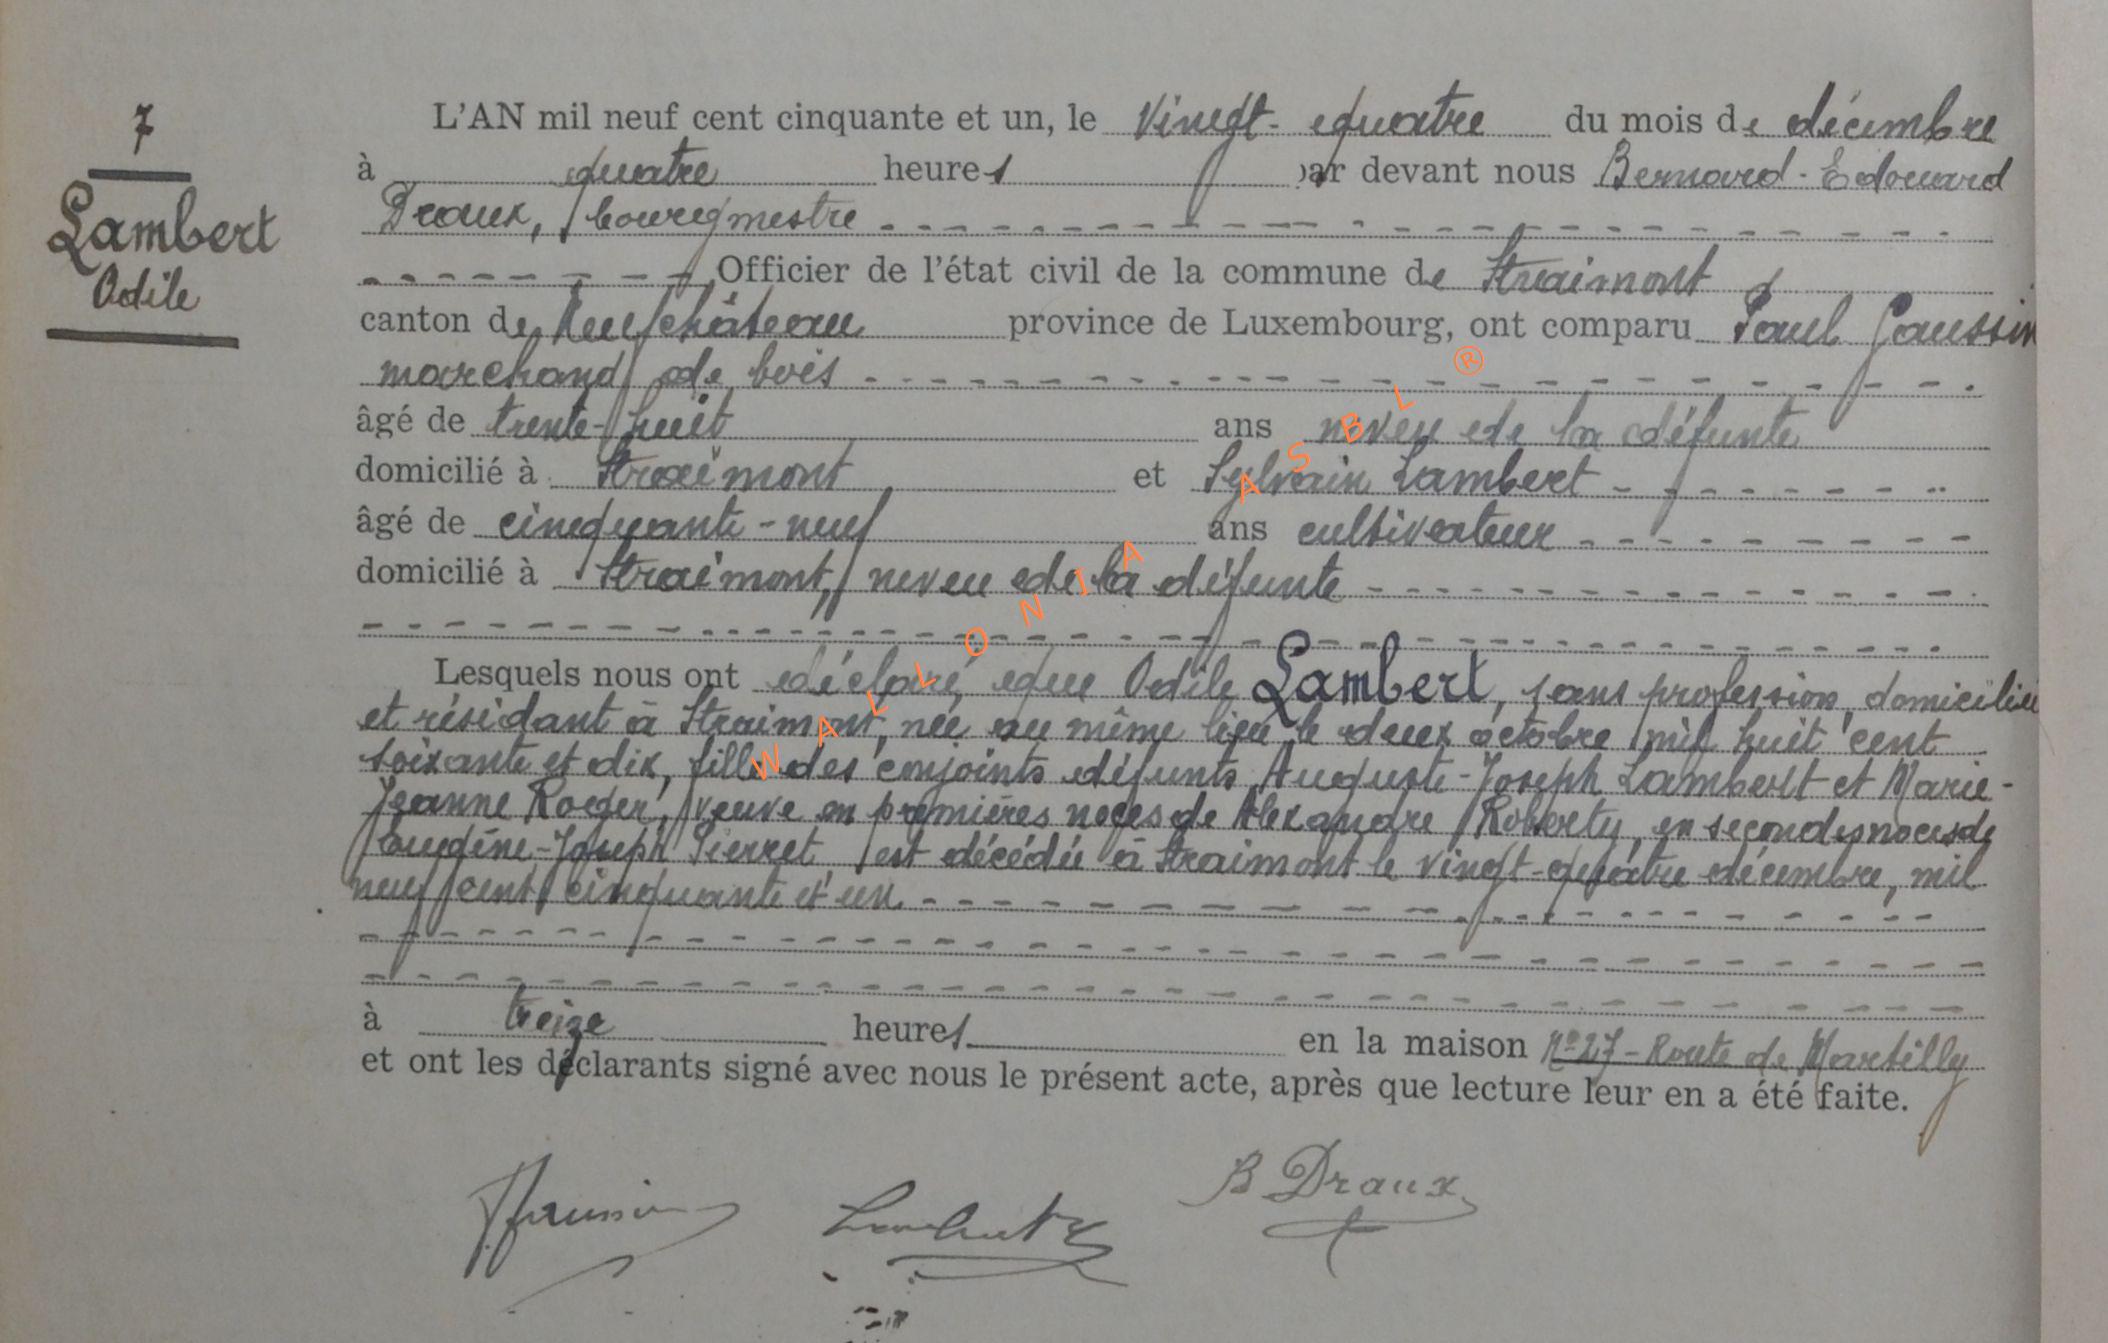 7
Lambert
Odile
L'AN mil neuf cent cinquante et un, le vingt-quatre du mois de décembre
à quatre heures par devant nous Bernard-Edouard
Draux, bourgmestre
Officier de l'état civil de la commune de Straimont
canton de Neufchâteau province de Luxembourg, ont comparu Paul Gaussin
marchand de bois
âgé de trente-huit ans neveu de la défunte
domicilié à Straimont et Sylvain Lambert
âgé de cinquante-neuf ans cultivateur
domicilié à Straimont, neveu de la défunte
Lesquels nous ont déclaré que Odile Lambert, sans profession, domiciliée
et résidant à Straimont, née au même lieu le deux octobre mil huit cent
soixante et dix, fille des conjoints défunts Auguste-Joseph Lambert et Marie-
Jeanne Roger, veuve en premières noces de Alexandre Roberty, en secondes noces de
Eugène-Joseph Pierret est décédée à Straimont le vingt-quatre décembre, mil
neuf cent cinquante et un
à treize heures en la maison N° 27 - Route de Martilly
et ont les déclarants signé avec nous le présent acte, après que lecture leur en a été faite.
Lambert B Draux
WALLONIA ASBL ®